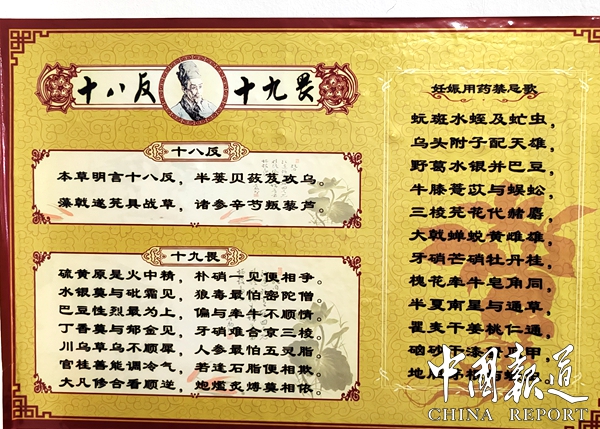 十八反 十九畏
十八反
本草明言十八反，半蒌贝蔹芨攻乌。
藻戟遂芫具战草，诸参辛芍叛藜芦。
十九畏
硫黄原是火中精，朴硝一见便相争。
水银莫与砒霜见，狼毒最怕密陀僧。
巴豆性烈最为上，偏与牵牛不顺情。
丁香莫与郁金见，牙硝难合京三棱。
川乌草乌不顺犀，人参最怕五灵脂。
官桂善能调冷气，若逢石脂便相欺。
大凡修合看顺逆，炮爁炙煿莫相依。
妊娠用药禁忌歌
蚖斑水蛭及虻虫，
乌头附子配天雄，
野葛水银并巴豆，
牛膝薏苡与蜈蚣，
三棱芫花代赭麝，
大戟蝉蜕黄雌雄，
牙硝芒硝牡丹桂，
槐花牵牛皂角同，
半夏南星与通草，
瞿麦干姜桃仁通，
硇砂干漆
地
中國報道
CHINA REPORT